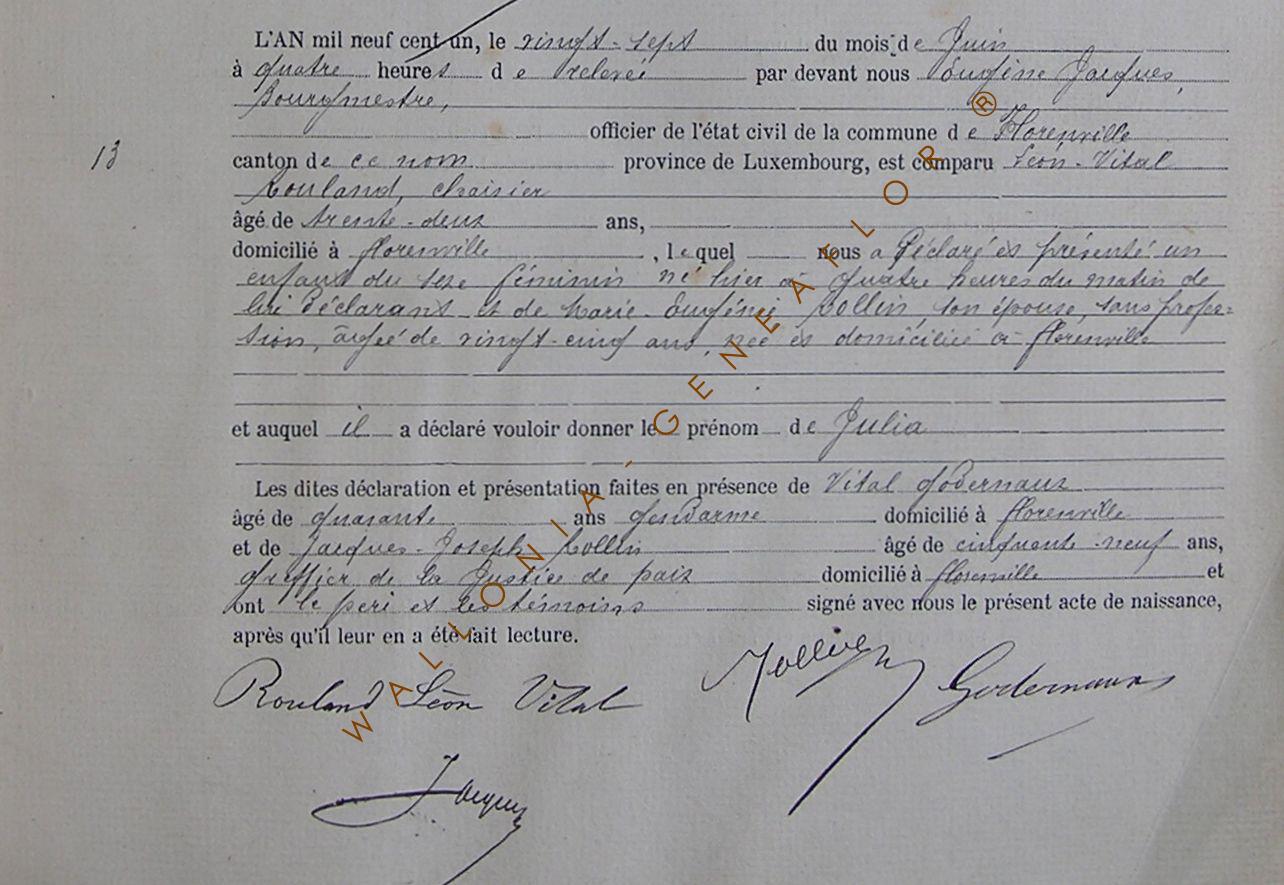 L'AN mil neuf cent un, le vingt-sept du mois de Juin
à quatre heures de relevée par devant nous Eugène Jacques,
Bourgmestre,
officier de l'état civil de la commune de Florenville
13
canton de ce nom province de Luxembourg, est comparu Léon-Vital
Rouland, chaisier
âgé de trente-deux ans,
domicilié à Florenville, lequel nous a déclaré et présenté un
enfant du sexe féminin né hier à quatre heures du matin de
lui déclarant et de Marie-Eugénie Collin, son épouse, sans profes=
sion, âgée de vingt-cinq ans, née et domiciliée à Florenville
et auquel il a déclaré vouloir donner le prénom de Julia
Les dites déclaration et présentation faites en présence de Vital Godernaux
âgé de quarante ans gendarme domicilié à Florenville
et de Jacques-Joseph Collin âgé de cinquante-neuf ans,
greffier de la Justice de paix domicilié à Florenville et
ont le père et les témoins signé avec nous le présent acte de naissance,
après qu'il leur en a été fait lecture.
Rouland Léon Vital
Godernaux
Jacques
WALLONIA-GENEAFLOR ®